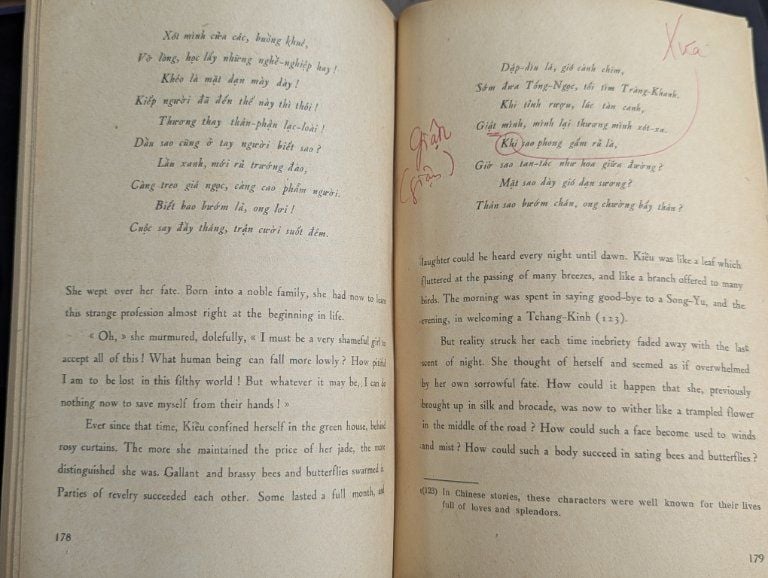 Xót mình cửa các, buồng khuê,
Vỡ lòng, học lấy những nghề-nghiệp hay !
Khéo là mặt dạn mày dày !
Kiếp người đã đến thế này thì thôi !
Thương thay thân-phận lạc-loài !
Dầu sao cũng ở tay người biết sao ?
Lầu xanh, mới rủ trướng đào,
Càng treo giá ngọc, càng cao phẩm người.
Biết bao bướm lả, ong lơi !
Cuộc say đầy tháng, trận cười suốt đêm.
She wept over her fate. Born into a noble family, she had now to learn
this strange profession almost right at the beginning in life.
« Oh, » she murmured, dolefully, « I must be a very shameful girl to
accept all of this ! What human being can fall more lowly ? How pitiful
I am to be lost in this filthy world ! But whatever it may be, I can do
nothing now to save myself from their hands ! »
Ever since that time, Kiều confined herself in the green house, behind
rosy curtains. The more she maintained the price of her jade, the more
distinguished she was. Gallant and brassy bees and butterflies swarmed in.
Parties of revelry succeeded each other. Some lasted a full month, and
178
Xưa
Dập-dìu lá, gió cành chim,
Sớm đưa Tống-Ngọc, tối tìm Tràng-Khanh.
Khi tỉnh rượu, lúc tàn canh,
Giật mình, mình lại thương mình xót-xa.
Khi sao phong gấm rủ là,
Giờ sao tan-tác như hoa giữa đường ?
Mặt sao dày gió dạn sương ?
Thân sao bướm chán, ong chường bấy thân ?
giận
(giận)
laughter could be heard every night until dawn. Kiều was like a leaf which
fluttered at the passing of many breezes, and like a branch offered to many
birds. The morning was spent in saying good-bye to a Song-Yu, and the
evening, in welcoming a Tchang-Kinh (123).
But reality struck her each time inebriety faded away with the last
scent of night. She thought of herself and seemed as if overwhelmed
by her own sorrowful fate. How could it happen that she, previously
brought up in silk and brocade, was now to wither like a trampled flower
in the middle of the road ? How could such a face become used to winds
and mist ? How could such a body succeed in sating bees and butterflies ?
(123) In Chinese stories, these characters were well known for their lives
full of loves and splendors.
179